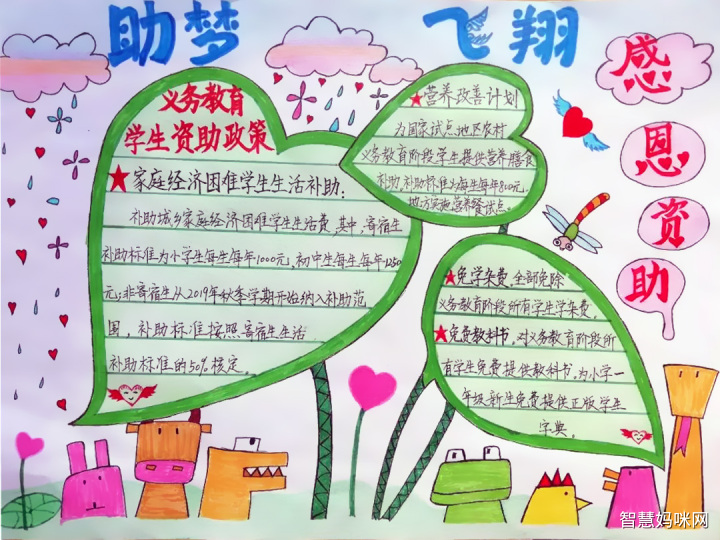 助梦 飞翔
感恩资助
义务教育
学生资助政策
★家庭经济困难学生生活补助：
补助城乡家庭经济困难学生生活费，其中，寄宿生
补助标准为小学生每生每年1000元，初中生每生每年1250
元；非寄宿生从2019年秋季学期开始纳入补助范
围，补助标准按照寄宿生生活
补助标准的50%核定。
★营养改善计划
为国家试点地区农村
义务教育阶段学生提供营养膳食
补助，补助标准为每生每年800元。
地方实施营养餐试点。
★免学杂费，全部免除
义务教育阶段所有学生学杂费。
★免费教科书，对义务教育阶段所
有学生免费提供教科书，为小学一
年级新生免费提供正版学生
字典。
智慧妈咪网